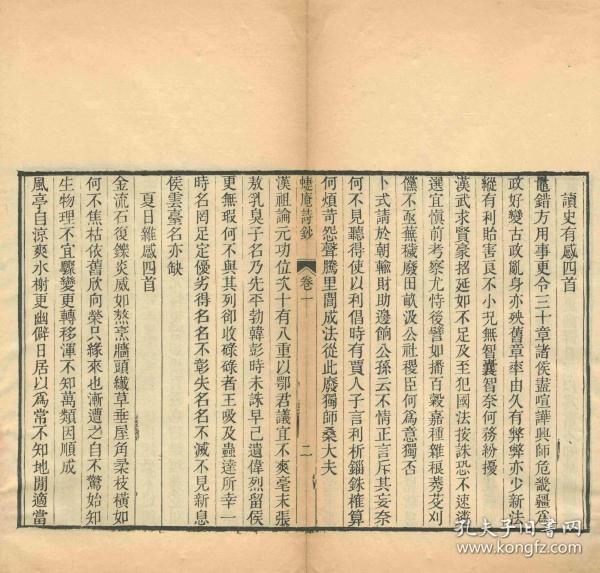 讀史有感四首
鼂錯方用事更令三十章諸侯盡喧譁興師危畿疆為
政好變古政亂身亦殃舊章率由久有弊弊亦少新法
縱有利貽害良不小況無智囊智奈何務紛擾
漢武求賢豪招延如不足及至犯國法按誅恐不速遴
選宜慎前考察尤恃後譬如播百穀嘉種雜稂莠芟刈
儻不亟蕪穢廢田畝汲公社稷臣何為意獨否
卜式請於朝輸財助邊餉公孫云不情正言斥其妄奈
何不見聽得使以利倡時有賈人子言利析錙銖榷算
何煩苛怨聲騰里閭咸法從此廢獨師桑大夫
蜨庵詩鈔
卷一
二
漢祖論元功位次十有八重以鄂君議宜不爽毫末張
敖乳臭子名乃先平勃韓彭時未誅早已遺偉烈留侯
更無瑕何不與其列卻收碌碌者王吸及蟲達所幸一
時名罔足定優劣得名名不彰失名名不滅不見新息
侯雲臺名亦缺
夏日雜感四首
金流石復鑠炎威如熬烹牆頭纖草垂屋角柔枝橫如
何不焦枯依舊欣向榮只緣來也漸遭之自不驚始知
生物理不宜驟變更轉移渾不知萬類因順成
風亭自涼爽水榭更幽僻日居以為常不知地閒適當
孔夫子旧书网
www.kongfz.com